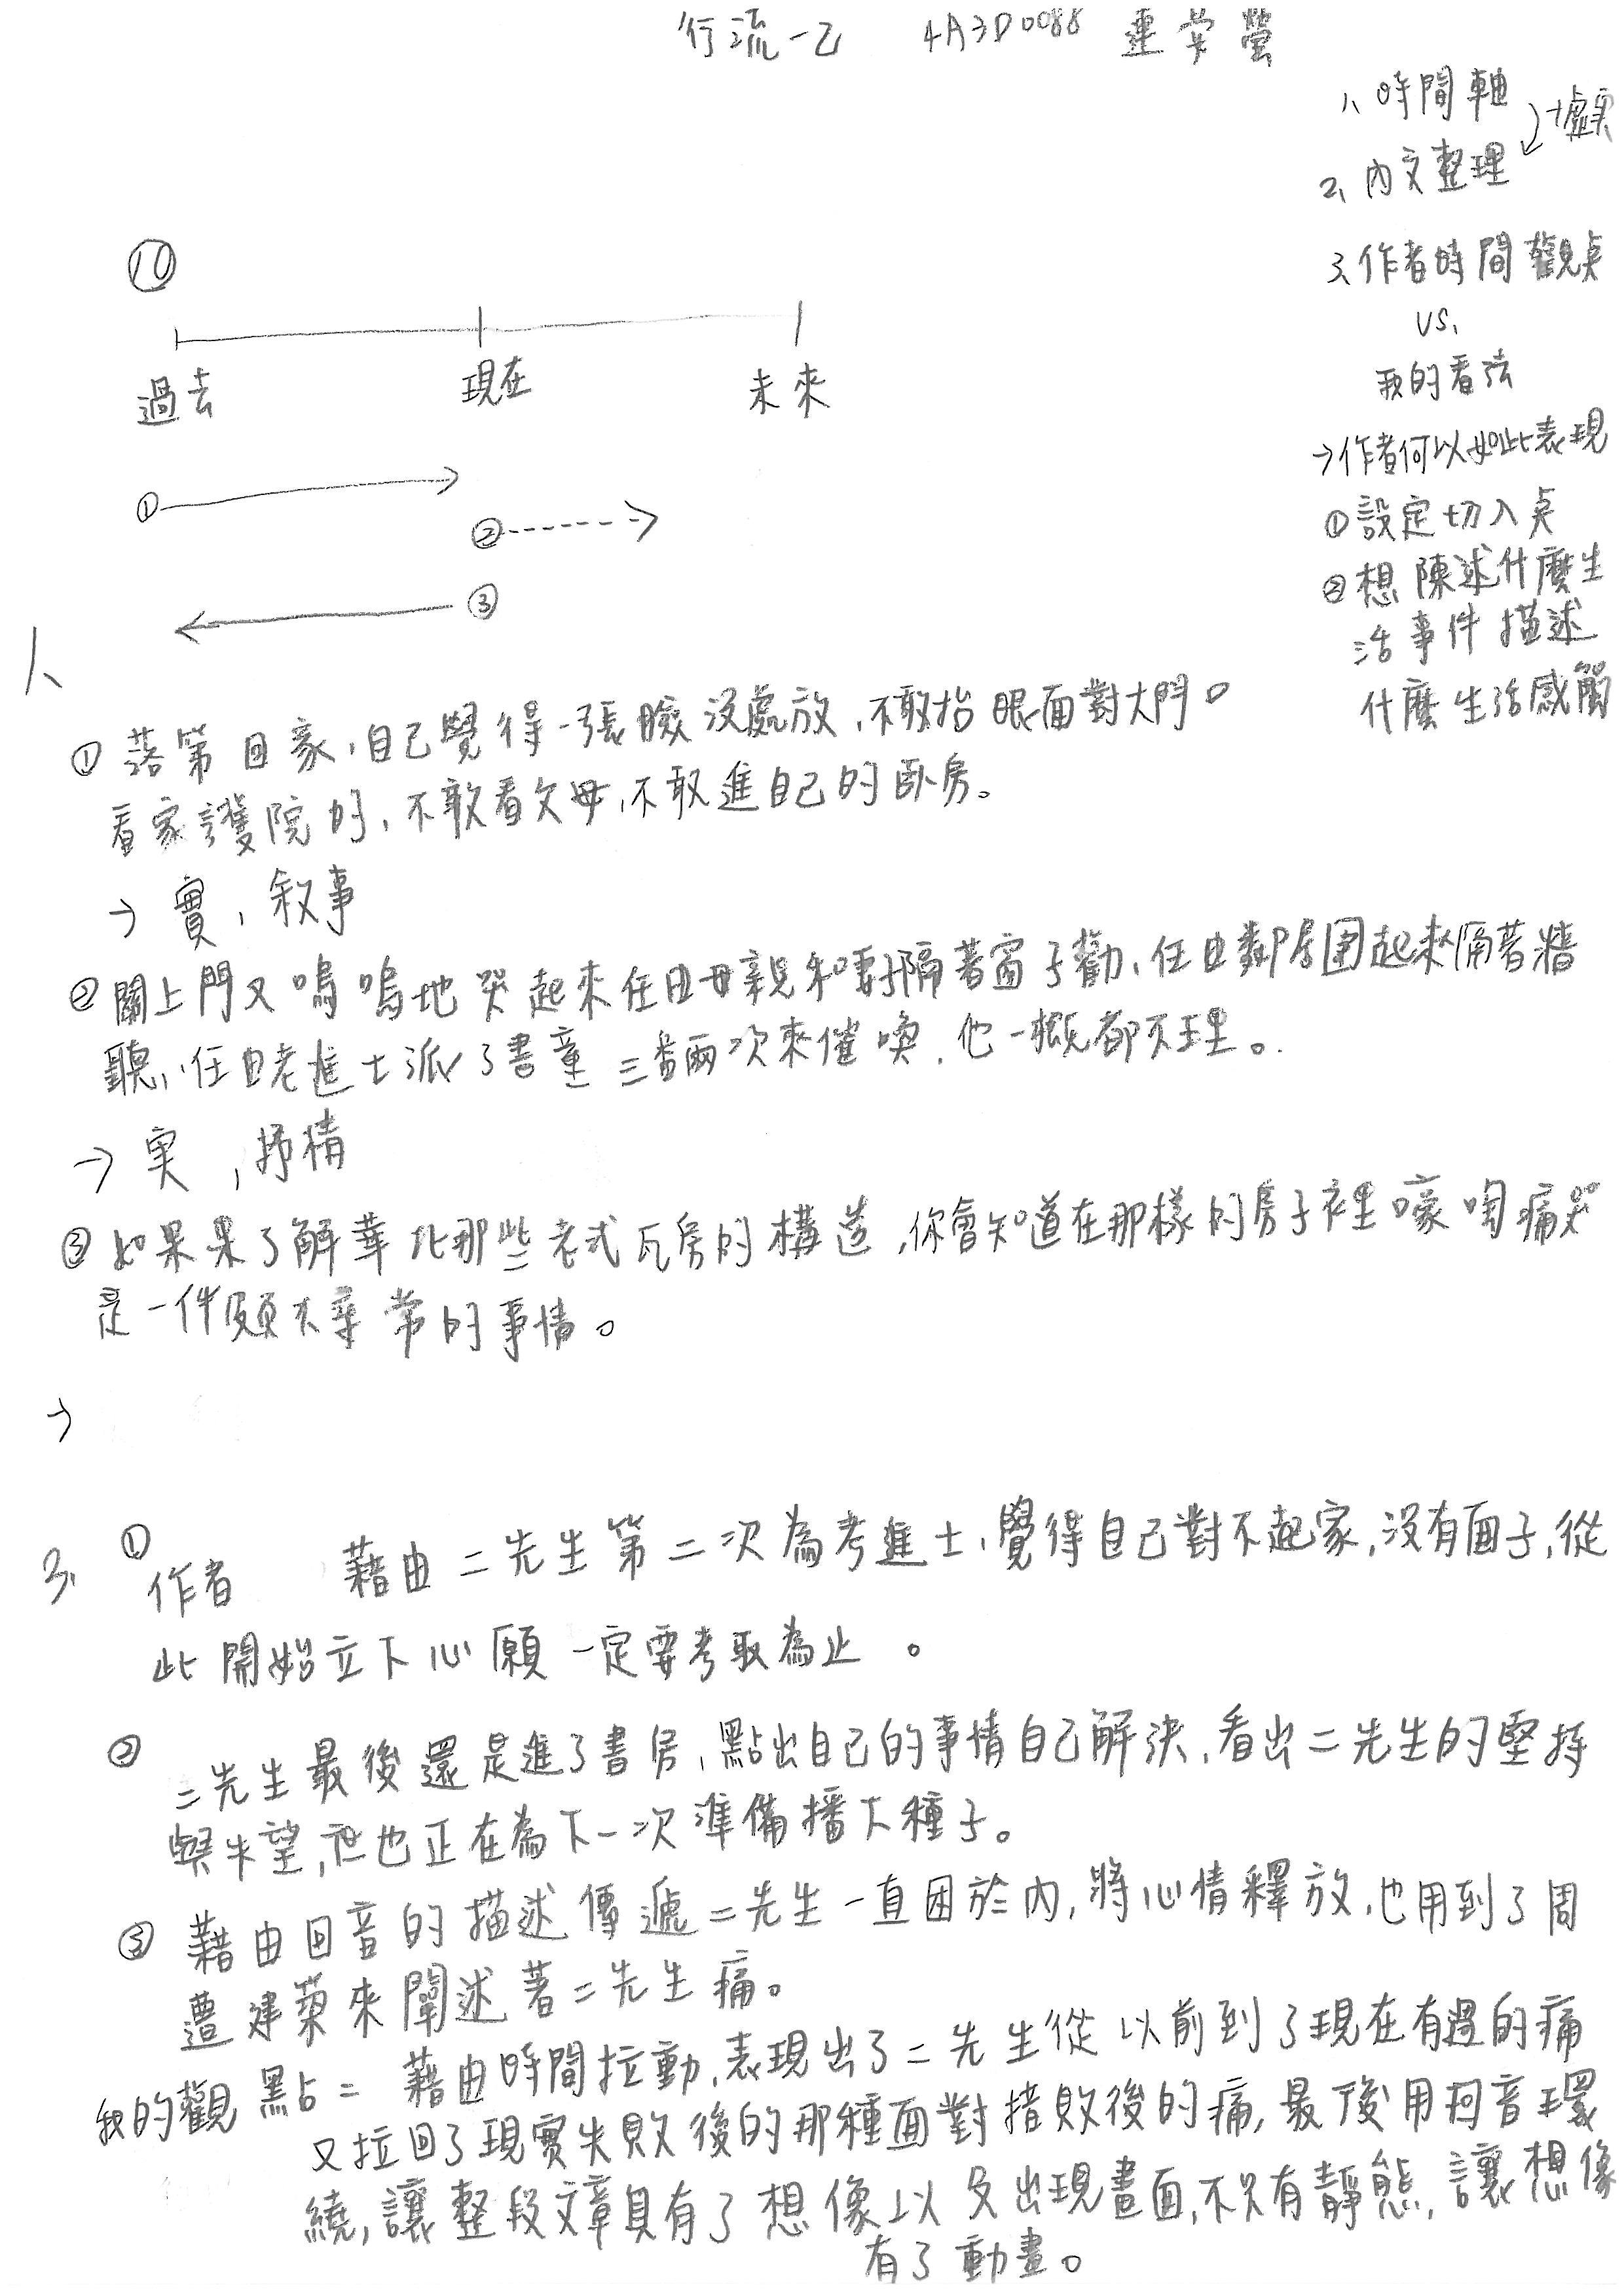 行流一乙 4A3D0088 連 瑩
1、時間軸
→虛実
2、內文整理
3、作者時間觀点
VS.
我的看法
→作者何以如此表現
①設定切入点
②想陳述什麼生
活事件描述
什麼生活感觸
⑩
過去 現在 未來
①
②
③
①落第回家,自己覺得一張臉沒處放,不敢抬眼面對大門。
看家護院的,不敢看父母,不敢進自己的臥房。
→實,敘事
②關上門又嗚嗚地哭起來任由母親和妻子隔著窗子勸,任由鄰居圍起來隔著牆
聽,任由老進士派了書童三番兩次來催喚,他一概都不理。
→実,抒情
③如果果了解華北那些老式瓦房的構造,你會知道在那樣的房子裡嚎啕痛哭
是一件頗不尋常的事情。
→
3、①作者 藉由二先生第二次為考進士,覺得自己對不起家,沒有面子,從
此開始立下心願一定要考取為止。
②二先生最後還是進了書房,點出自己的事情自己解決,看出二先生的堅持
與失望,但也正在為下一次準備播下種子。
③藉由回音的描述傳遞二先生一直困於內,將心情釋放,也用到了周
遭建築來闡述著二先生痛。
我的觀點= 藉由時間拉動,表現出了二先生從以前到了現在有過的痛
又拉回了現實失敗後的那種面對措敗後的痛,最後用回音環
繞,讓整段文章具有了想像以及出現畫面,不只有靜態,讓想像
有了動畫。